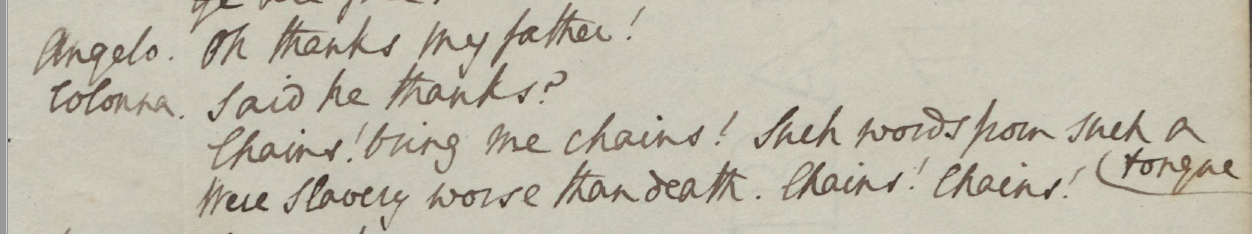 ye are free.
Angelo. Oh thanks my father!
Colonna. Said he thanks?
Chains! bring me chains! Such words from such a
(tongue
Were Slavery worse than death. Chains! Chains!